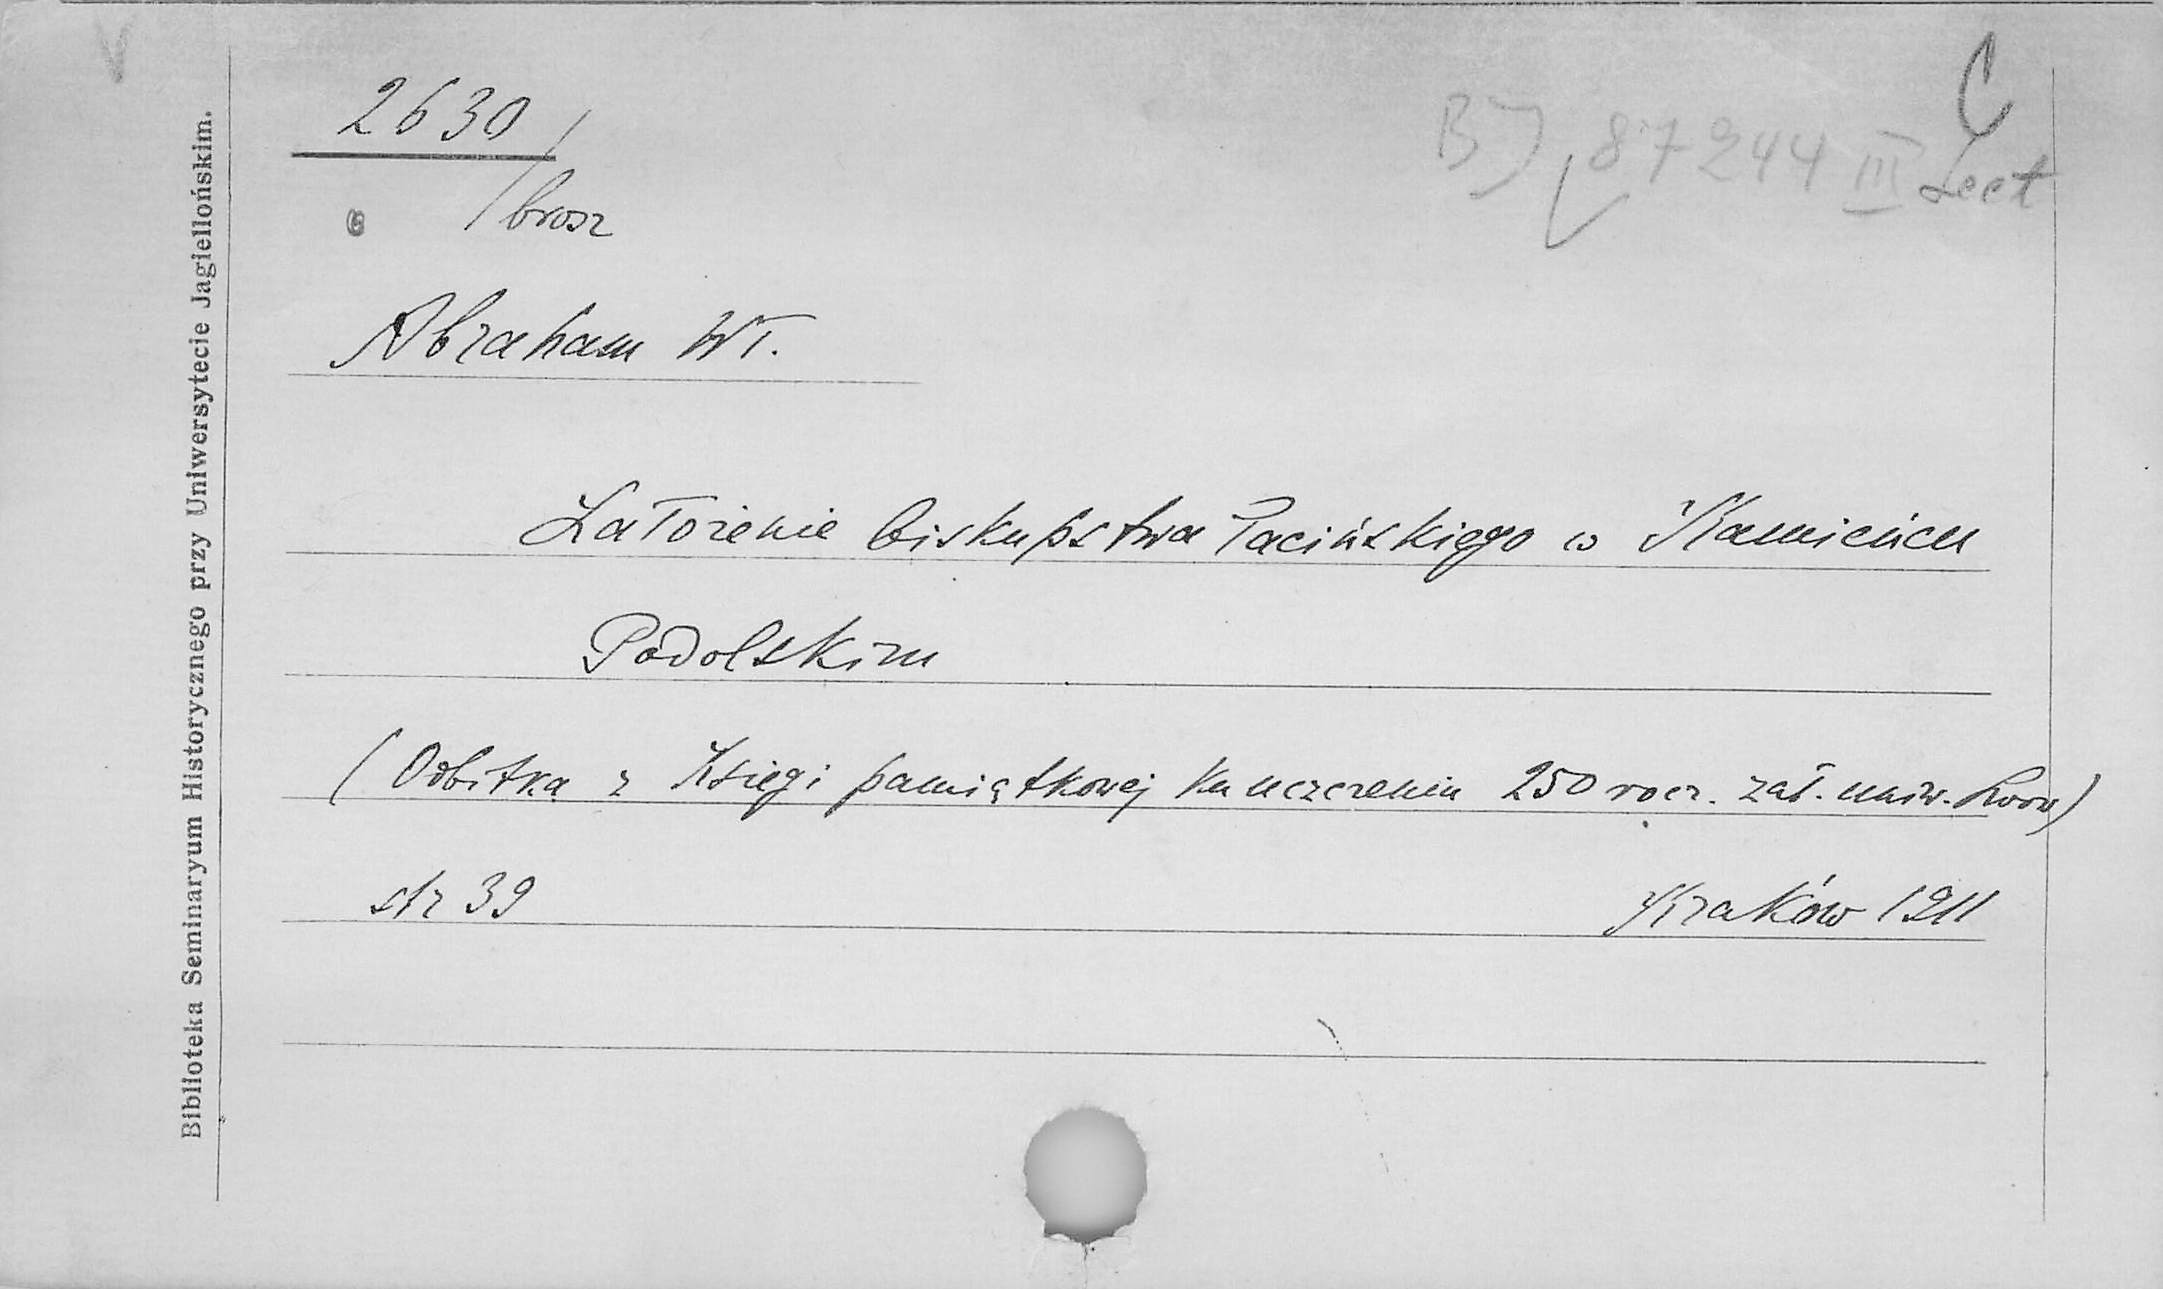 V
C
2630/brosz
BJ 87244 III Lect
Abraham Wł.
Założenie biskupstwa łacińskiego w Kamieńcu
Podolskim
(Odbitka z Księgi pamiątkowej ku uczczeniu 250 rocz. zał. uniw. Lwow)
str 39
Kraków 1911
Biblioteka Seminaryum Historycznego przy Uniwersytecie Jagiellońskim.